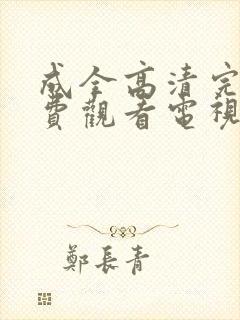 成全高清完
費觀看電視
鄭長青